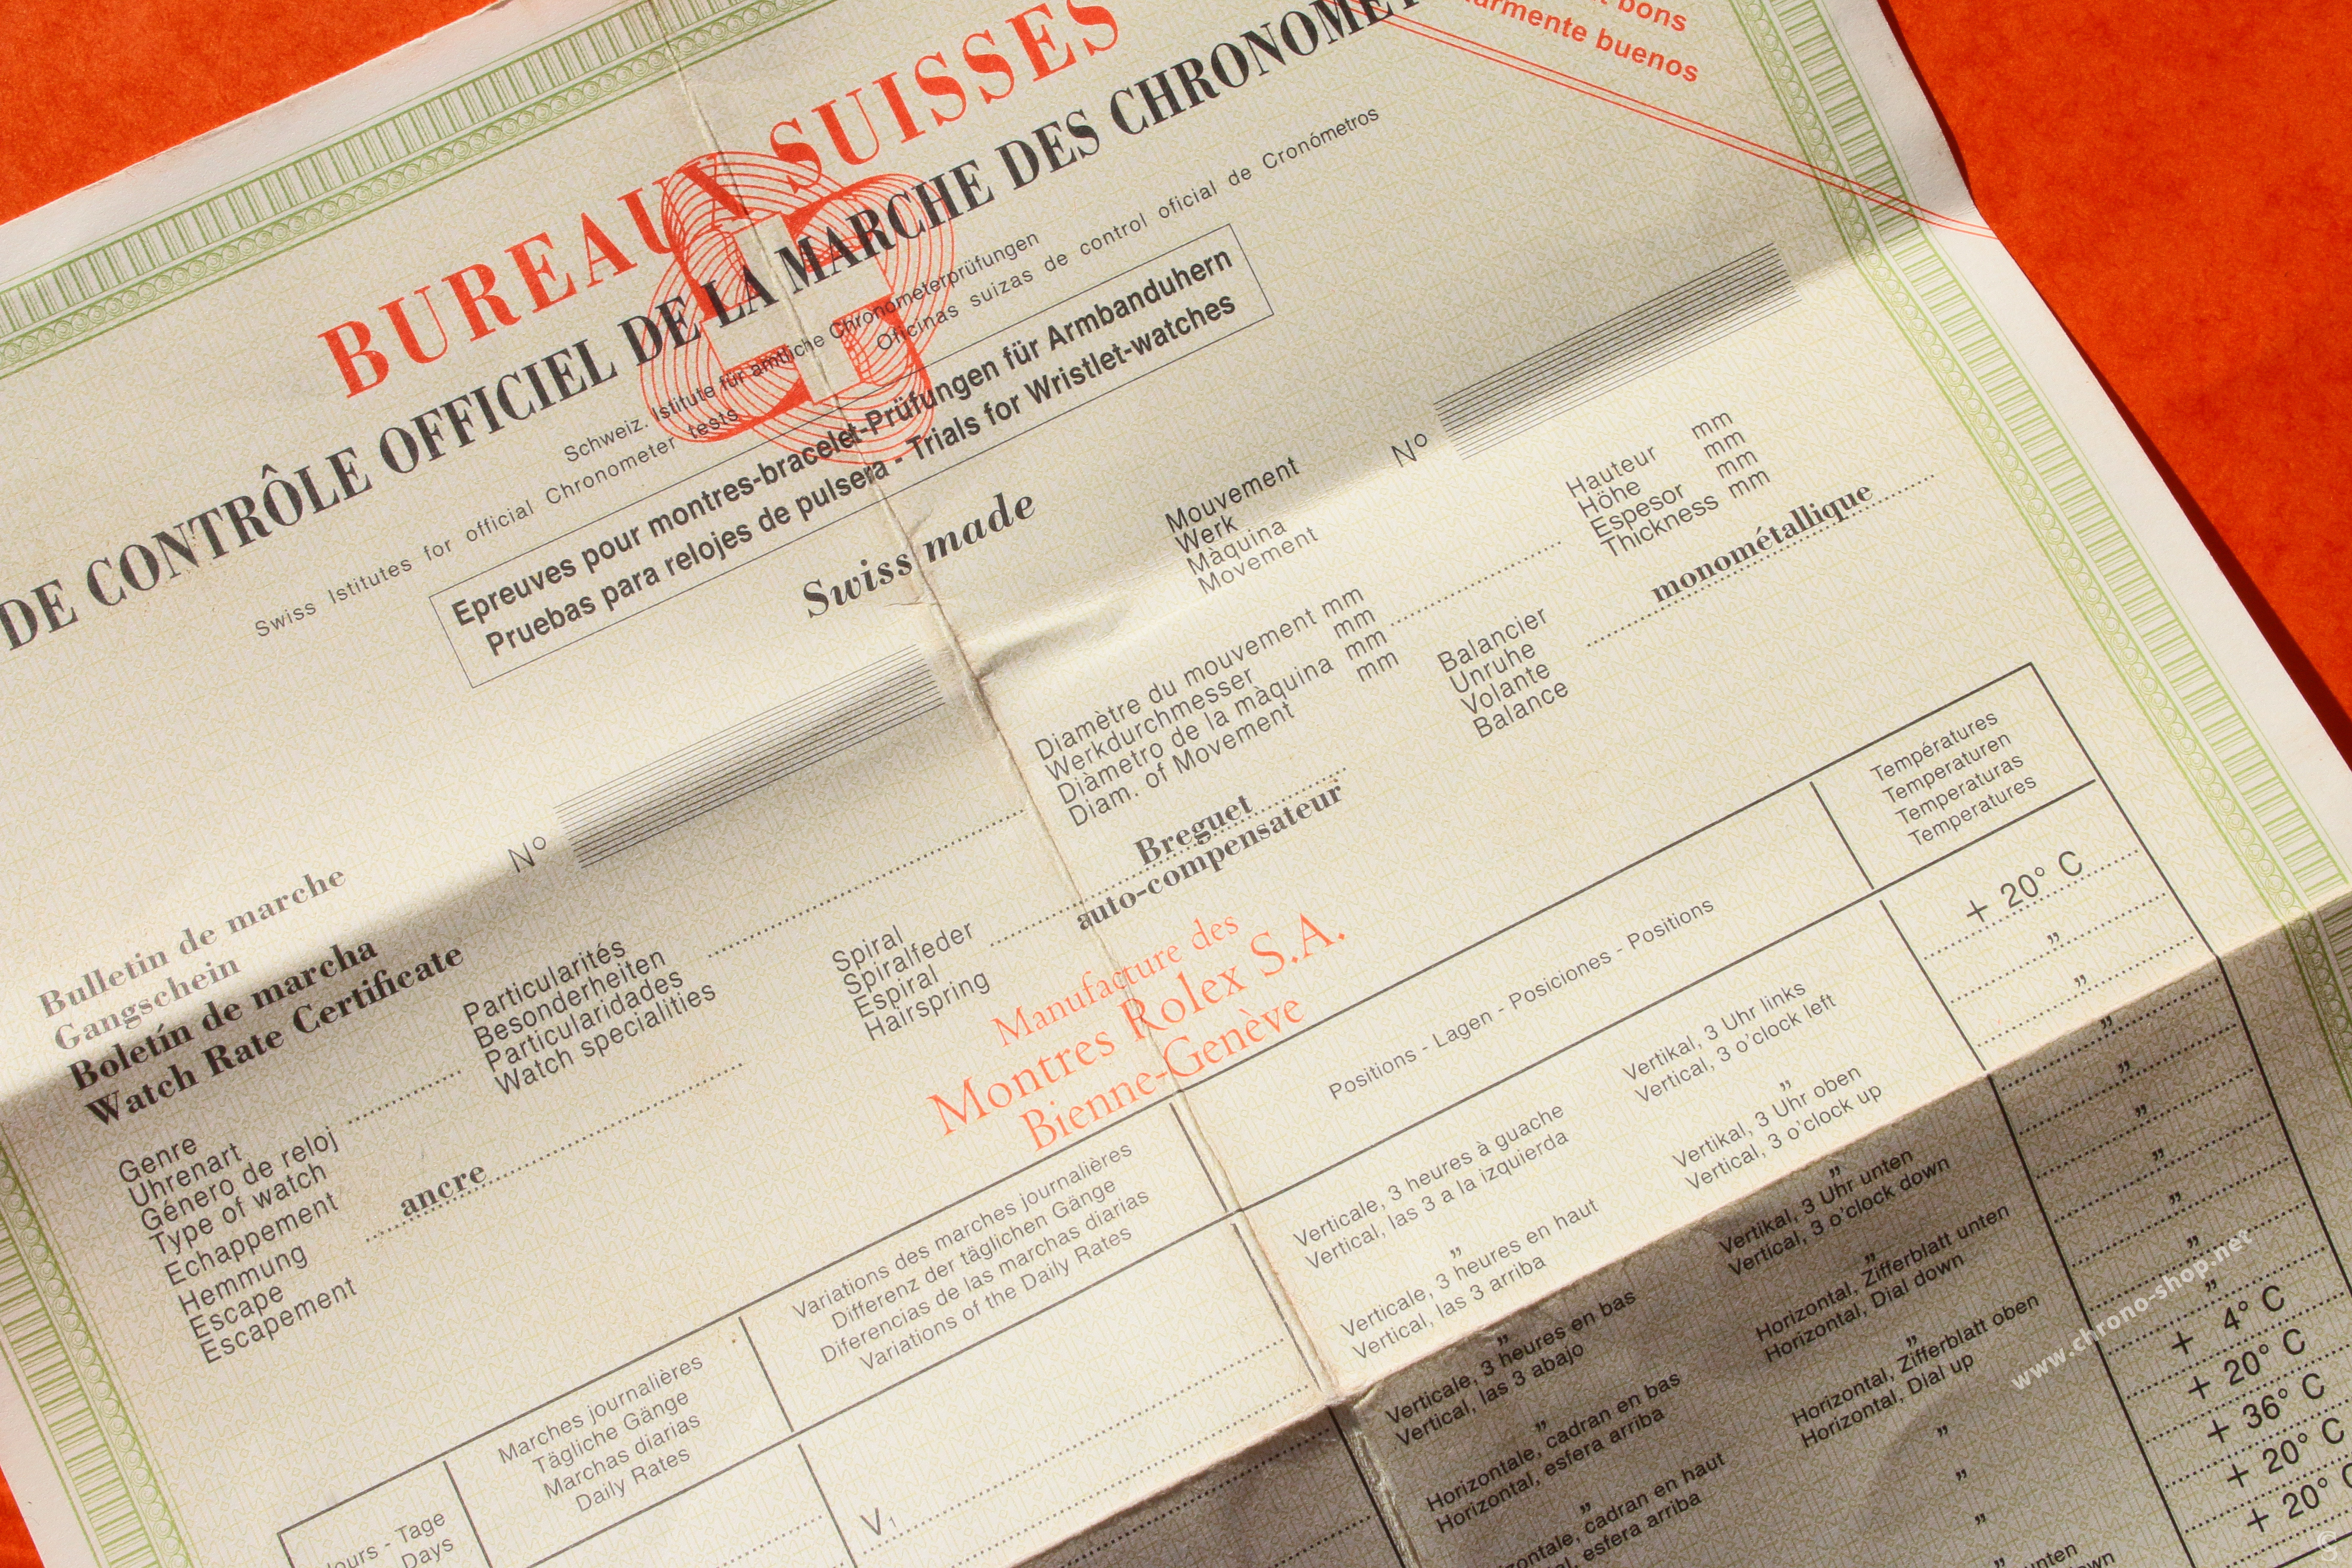 bons
buenos
BUREAUX SUISSES
DE CONTRÔLE OFFICIEL DE LA MARCHE DES
Schweiz. Istitute für amtliche Chronometerprüfungen
Swiss Istitutes for official Chronometer tests
Oficinas suizas de control oficial de Cronómetros
Epreuves pour montres-bracelet-Prüfungen für Armbanduhern
Pruebas para relojes de pulsera - Trials for Wristlet-watches
Swiss made
Bulletin de marche
Gangschein
Boletín de marcha
Watch Rate Certificate
No
Mouvement
Werk
Màquina
Movement
No
Genre
Uhrenart
Género de reloj
Type of watch
Particularités
Besonderheiten
Particularidades
Watch specialities
Diamètre du mouvement mm
Werkdurchmesser mm
Diàmetro de la màquina mm
Diam. of Movement mm
Hauteur mm
Höhe mm
Espesor mm
Thickness mm
Echappement
Hemmung
Escape
Escapement
ancre
Spiral
Spiralfeder
Espiral
Hairspring
Breguet
auto-compensateur
Balancier
Unruhe
Volante
Balance
monométallique
Manufacture des
Montres Rolex S.A.
Bienne-Genève
Jours - Tage
Days
Marches journalières
Tägliche Gänge
Marchas diarias
Daily Rates
Variations des marches journalières
Differenz der täglichen Gänge
Diferencias de las marchas diarias
Variations of the Daily Rates
Positions - Lagen - Posiciones - Positions
Températures
Temperaturen
Temperaturas
Temperatures
V1
Verticale, 3 heures à guache
Vertical, las 3 a la izquierda
Vertikal, 3 Uhr links
Vertical, 3 o'clock left
+ 20° C
"
"
"
"
Verticale, 3 heures en haut
Vertical, las 3 arriba
Vertikal, 3 Uhr oben
Vertical, 3 o'clock up
"
"
"
"
Verticale, 3 heures en bas
Vertical, las 3 abajo
Vertikal, 3 Uhr unten
Vertical, 3 o'clock down
"
"
"
"
Horizontale, cadran en bas
Horizontal, esfera arriba
Horizontal, Zifferblatt unten
Horizontal, Dial down
"
"
"
cadran en haut
esfera arriba
Horizontal, Zifferblatt oben
Horizontal, Dial up
+ 4° C
+ 20° C
+ 36° C
+ 20° C
+ 20° C
"
"
"
"
www.chrono-shop.net
©